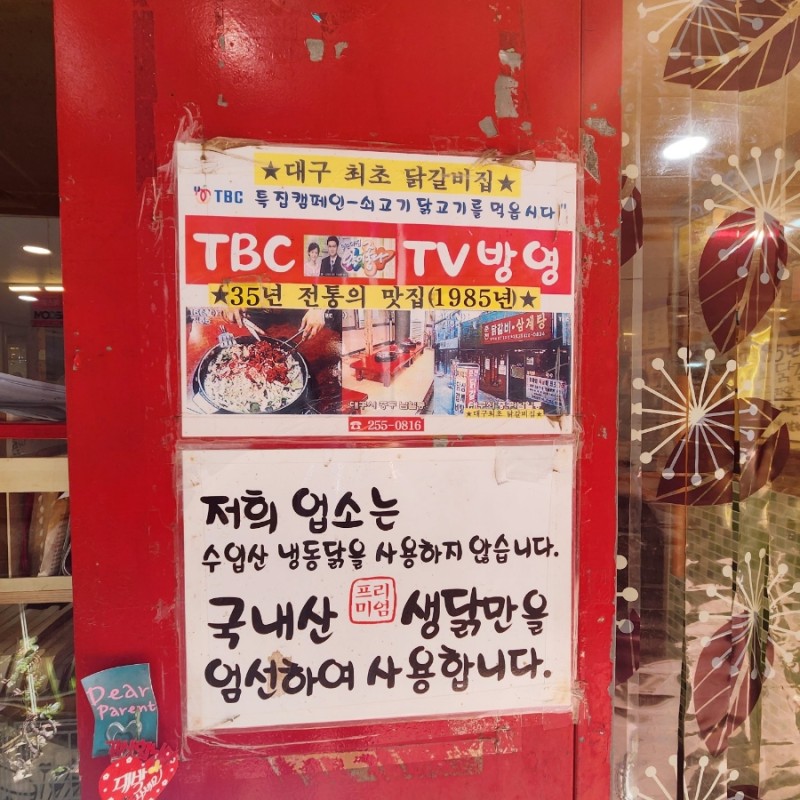 ★대구 최초 닭갈비집★
"TBC 특집캠페인-쇠고기 닭고기를 먹읍시다"
TBC TV방영
★35년 전통의 맛집(1985년)★
닭갈비·삼계탕
★대구최초 닭갈비집★
☎ 255-0816
저희 업소는
수입산 냉동닭을 사용하지 않습니다.
국내산 프리미엄 생닭만을
엄선하여 사용합니다.
Dear
Parent
대박